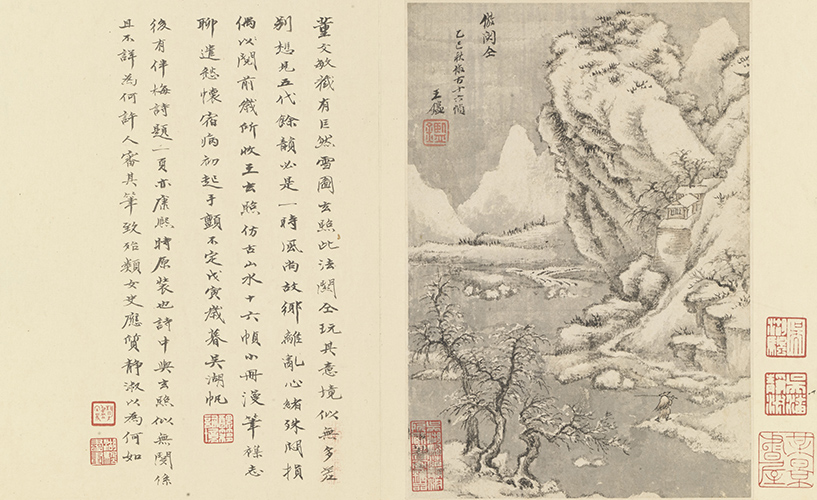 倣関仝
乙巳秋倣古十六幀
王鑑
董文敏藏有巨然雪圖玄照此法関仝玩其意境似無多差
別想見五代餘韻必是一時風尚故鄉離亂心緒殊悶損
偶以閱前歲所收王玄照仿古山水十六幀小冊漫筆襍志
聊遣愁懷宿病初起手顫不定戊寅歲暮吳湖帆
後有伴梅詩題一頁亦康熙時原裝也詩中與玄照似無関係
且不詳為何許人審其筆致殆類女史應質靜淑以為何如
某景書屋